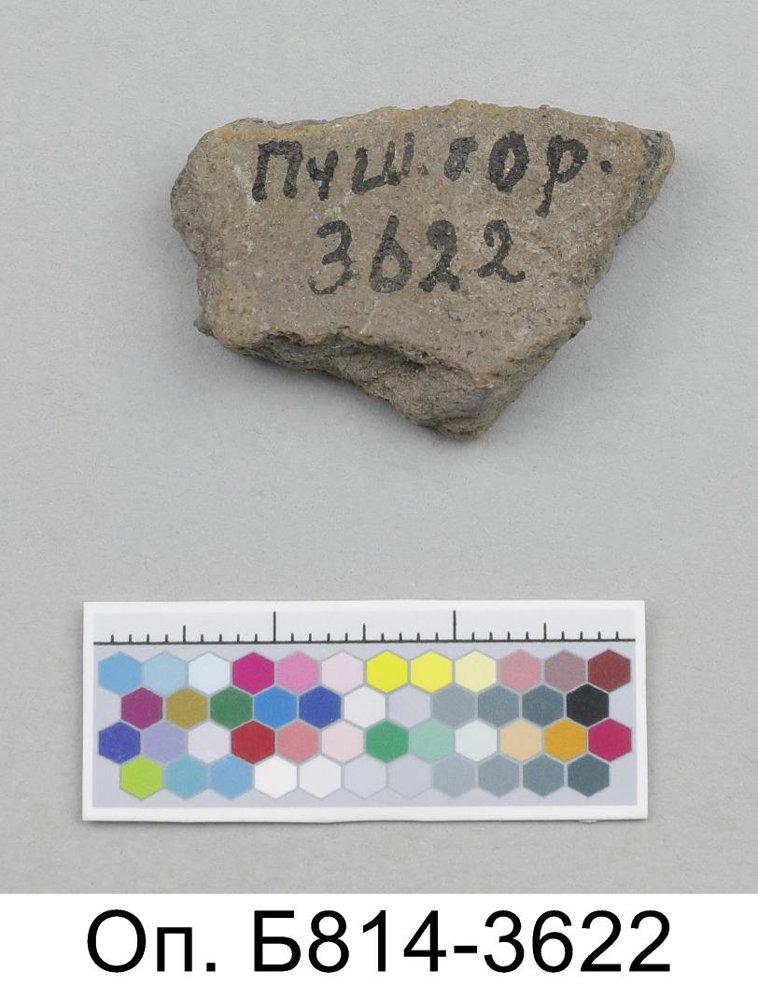 Пуш. гор.
3622
Оп. Б814-3622